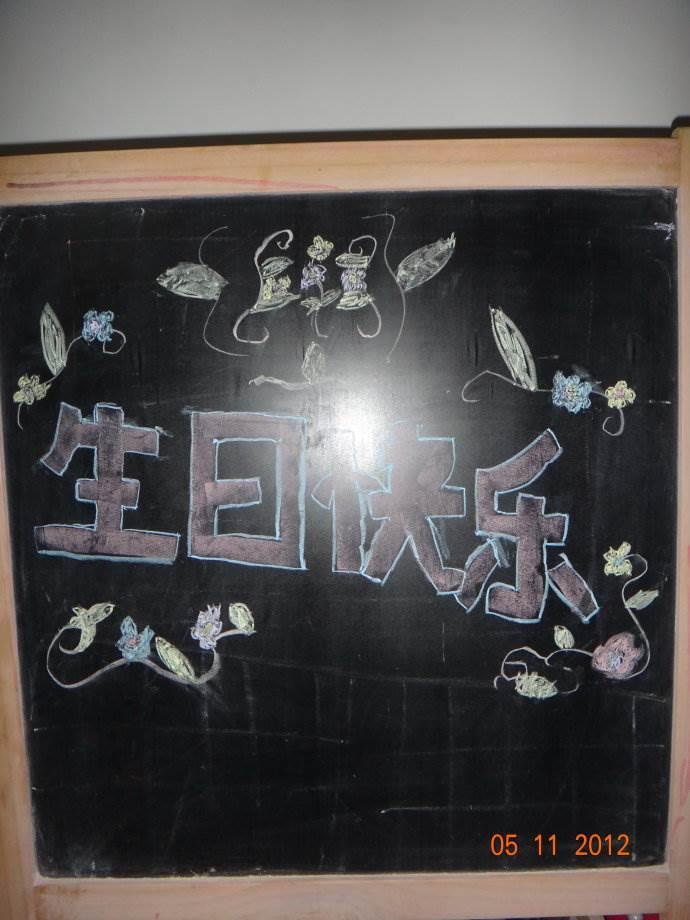 生日快乐
05 11 2012